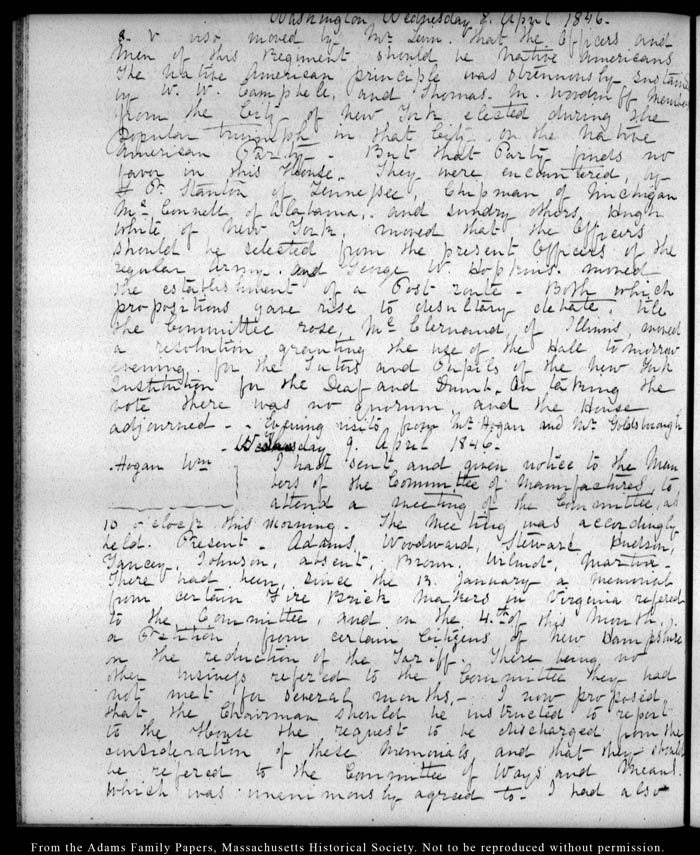 Washington Wednesday 8. April 1846.
8. V also moved by Mr. Levin. that the Officers and
Men of this Regiment should be Native Americans
The Native American principle was strenuously sustained
by W. W. Campbell, and Thomas. M. Woodruff Members
from the City of New York elected during the
popular triumph in that City on the Native
American Party - But that Party finds no
favor in this House. They were encountered, by
F P. Stanton of Tennessee, Chipman of Michigan
Mc. Connell of Alabama, and sundry others, Hugh
White of New York, moved that the Officers
should be selected from the present Officers of the
regular Army. and George W. Hopkins moved
the establishment of a Post route - Both which
propositions gave rise to desultory debate, till
the Committee rose, McClernand, of Illinois, moved
a resolution granting the use of the Hall tomorrow
evening for the Tutors and Pupils of the New York
Institution for the Deaf and Dumb. On taking the
vote there was no quorum and the House
adjourned - Evening visits from Mr Hogan and Mr Goldsborough
- 9. April 1846.
Hogan Wm I had sent and given notice to the Mem
bers of the Committee of Manufactures, to
attend a meeting of the Committee, at
10 o'clock this morning. The Meeting was accordingly
held. Present - Adams, Woodward, Stewart Hudson,
Yancey, Johnson, absent, Brown, Wilmot, Martin -
There had been, since the 13. January a memorial
from certain Fire Brick Makers in Virginia refered
to the Committee, and on the 4.th of this month,
a Petition from certain Citizens of New Hampshire
on the reduction of the Tariff. There being no
other business refered to the Committee they had
not met for several months, - I now proposed,
that the Chairman should be instructed to report
to the House the request to be discharged from the
consideration of these Memorials, and that they should
be refered to the Committee of Ways and Means.
which was unanimously agreed to - I had also
From the Adams Family Papers, Massachusetts Historical Society. Not to be reproduced without permission.